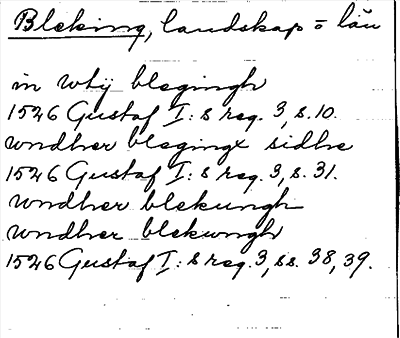 Bleking, landskap o län
in wtij blegingh
1526 Gustaf I: s reg. 3, s. 10.
wndher blegingx sidhe
1526 Gustaf I: s reg. 3, s. 31.
wndher blekungh
wndher blekwngh
1526 Gustaf I: s reg. 3, ss. 38, 39.